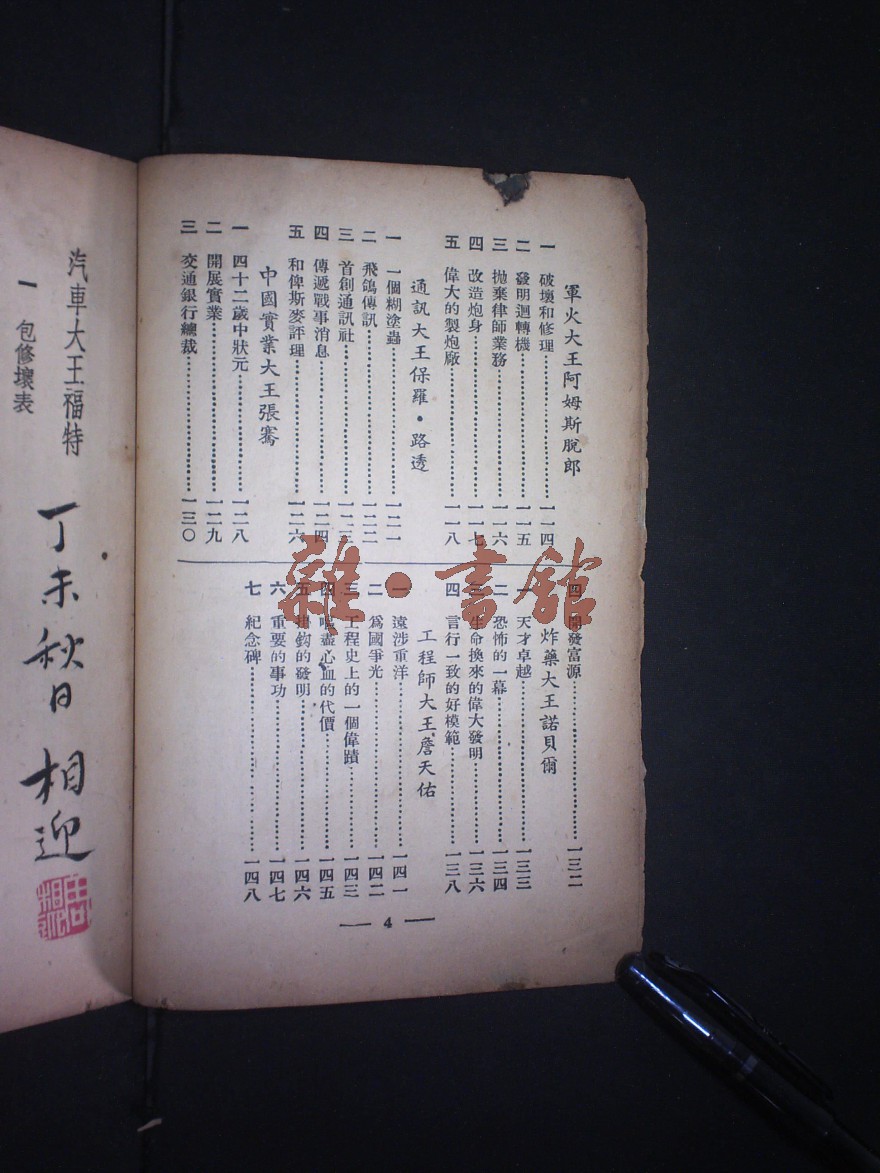 軍火大王阿姆斯脫郎
一 破壞和修理……一一四
二 發明迴轉機……一一五
三 拋棄律師業務……一一六
四 改造炮身……一一七
五 偉大的製炮廠……一一八
通訊大王保羅·路透
一 一個糊塗蟲……一二一
二 飛鴿傳訊……一二二
三 首創通訊社……一二三
四 傳遞戰事消息……一二四
五 和俾斯麥評理……一二六
中國實業大王張騫
一 四十二歲中狀元……一二八
二 開展實業……一二九
三 交通銀行總裁……一三〇
四 開發富源……一三二
炸藥大王諾貝爾
一 天才卓越……一三三
二 恐怖的一幕……一三四
三 生命換來的偉大發明……一三六
四 言行一致的好模範……一三八
工程師大王詹天佑
一 遠涉重洋……一四一
二 爲國爭光……一四二
三 工程史上的一個偉蹟……一四三
四 嘔盡心血的代價……一四五
五 掛鈎的發明……一四六
六 重要的事功……一四七
七 紀念碑……一四八
— 4 —
汽車大王福特
一 包修壞表
丁未秋日 相迎
雜·書館